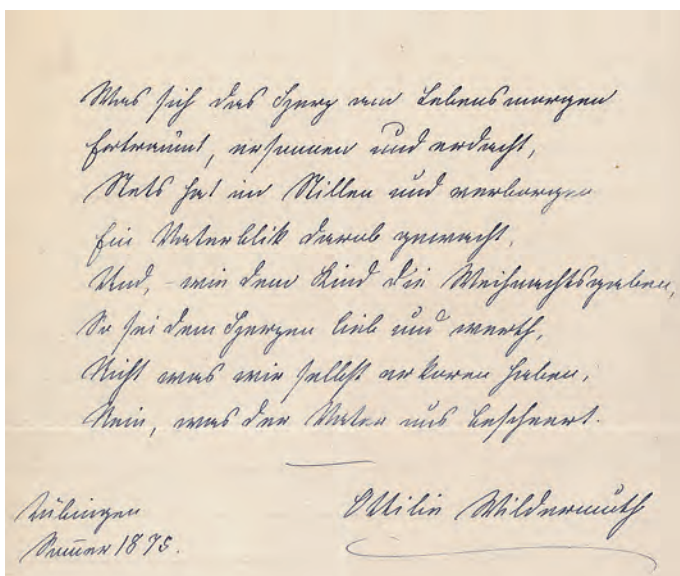 Was sich das Herz am Lebensmorgen
Erträumt, ersonnen und erdacht,
Stets hat im Stillen und verborgen
Ein Vaterblik darob gewacht.
Und, – wie dem Kind die Weihnachtsgaben,
So sei dem Herzen lieb und werth,
Nicht was wir selbst erkoren haben,
Nein, was der Vater uns bescheert.
Tübingen
Sommer 1875.
Ottilie Wildermuth